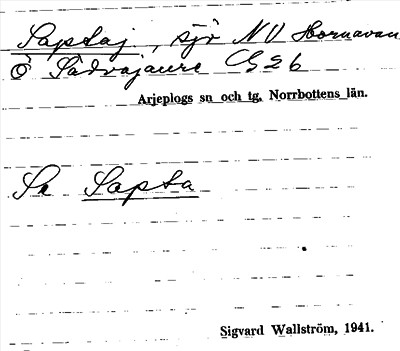 Saptaj, sjö NV Hornavan
Ö Sädvajaure C 26
Arjeplogs sn och tg, Norrbottens län.
Se Sapta
Sigvard Wallström, 1941.